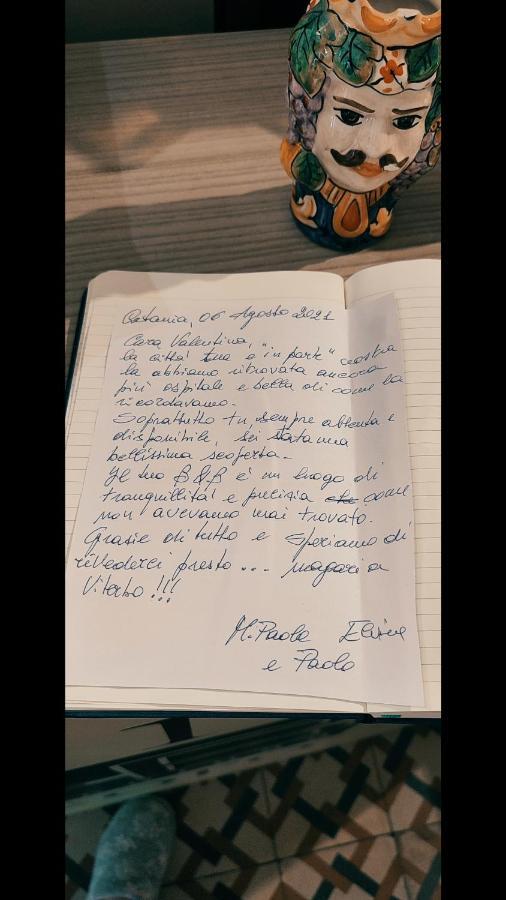 Catania, 06 Agosto 2021
Cara Valentina,
la città tua e "in parte" nostra
la abbiamo ritrovata ancora
più ospitale e bella di come la
ricordavamo.
Soprattutto tu, sempre attenta e
disponibile, sei stata una
bellissima scoperta.
Il tuo B&B è un luogo di
tranquillità e pulizia che come
non avevamo mai trovato.
Grazie di tutto e speriamo di
rivederci presto... magari a
Viterbo!!!
M. Paola
e Paolo